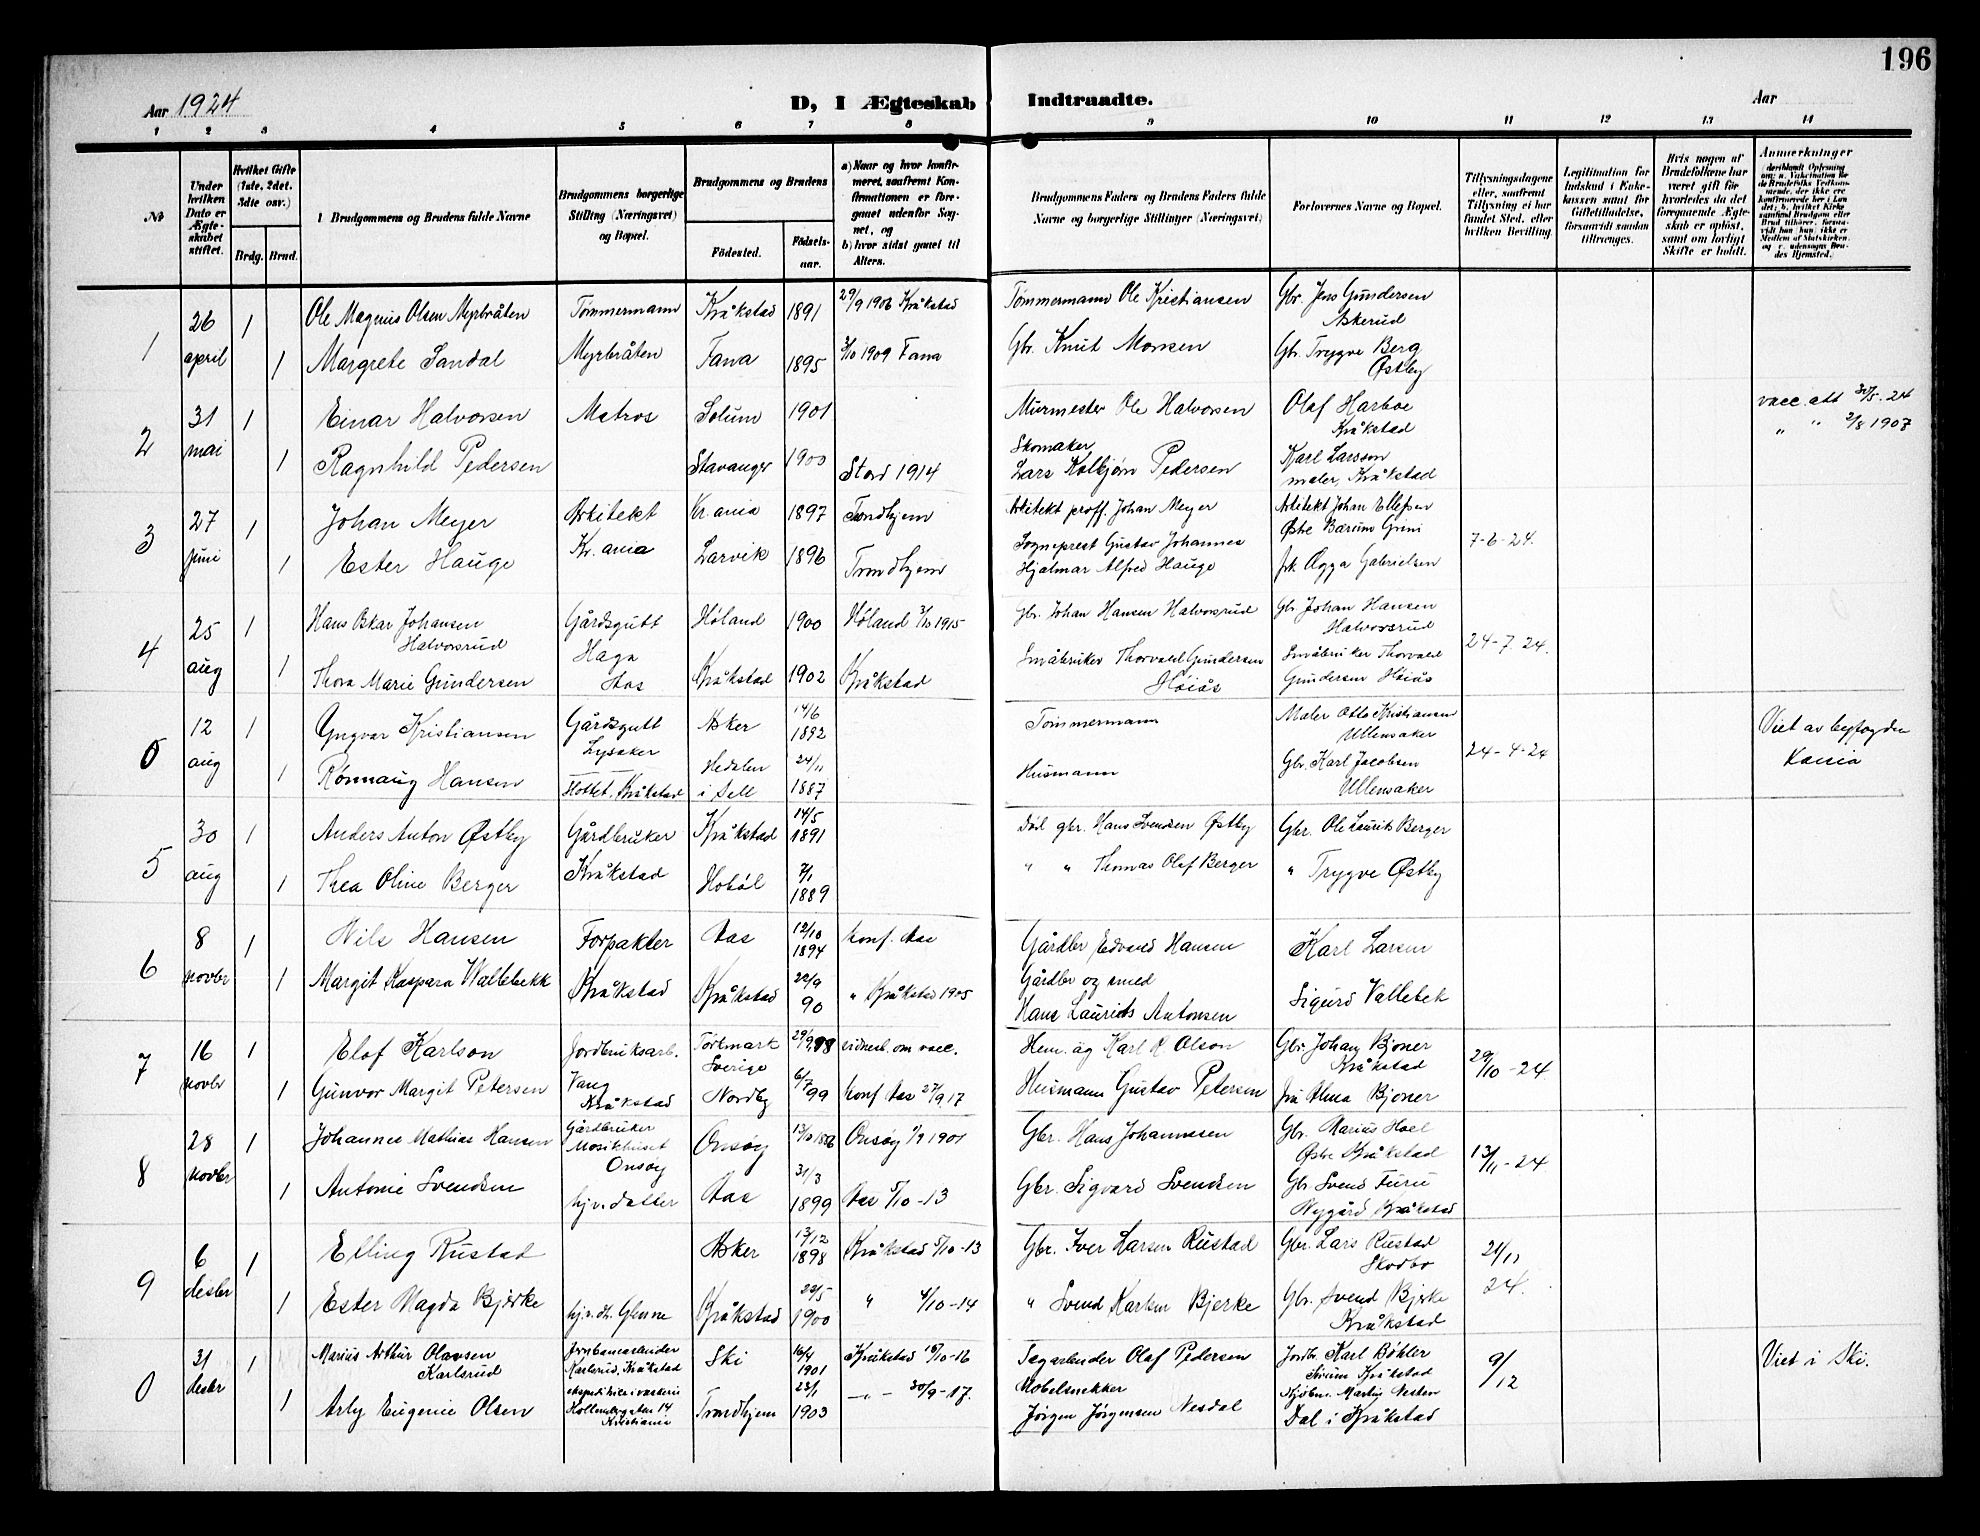 196
Aar 1924
D, I Ægteskab Indtraadte.
Aar
1 2 3 4 5 6 7 8 9 10 11 12 13 14
№
Under hvilken Dato er Ægteskabet stiftet.
Hvilket Gifte (1ste, 2det, 3dte osv.)
Brdg. Brud.
Brudgommens og Brudens fulde Navne
Brudgommens borgerlige Stilling (Næringsvei) og Bopæl.
Brudgommens og Brudens
Fødested. Fødselsaar.
a) Naar og hvor konfirmeret, saafremt Konfirmationen er foregaaet udenfor Sognet, og
b) hvor sidst gaaet til Alters.
Brudgommens Faders og Brudens Faders fulde Navne og borgerlige Stillinger (Næringsvei)
Forlovernes Navne og Bopæl.
Tillysningsdagene eller, saafremt Tillysning ei har fundet Sted, efter hvilken Bevilling.
Legitimation for Indskud i Enkekassen samt for Giftetilladelse, forsaavidt saadan tiltrænges.
Hvis nogen af Brudefolkene har været gift før hvorledes da det foregaaende Ægteskab er opløst, samt om lovligt Skifte er holdt.
Anmerkninger
1 26 april 1 Ole Magnus Olsen Myrbråten Tømmermann Kråkstad 1891 29/9 1906 Kråkstad Tømmermann Ole Kristiansen Gbr. Jens Gundersen Askerud
1 Margrete Sandal Myrbråten Fana 1895 3/10 1909 Fana Gbr. Knut Monsen Gbr. Trygve Berg Østby
2 31 mai 1 Einar Halvorsen Matros Solum 1901 Murmester Ole Halvorsen Olaf Harboe Kråkstad vacc. att 30/5.24
1 Ragnhild Pedersen Stavanger 1900 Stord 1914 Skomaker Lars Kolbjørn Pedersen Karl Larsson maler, Kråkstad " " 2/8 1907
3 27 juni 1 Johan Meyer Arkitekt Kr.ania 1897 Trondhjem Arkitekt proff. Johan Meyer Arkitekt Johan Ellefsen Østre Bærum Grini 7-6-24.
1 Ester Hauge Kr.ania Larvik 1896 Trondhjem Sogneprest Gustav Johannes Hjalmar Alfred Hauge frk Agga Gabrielsen
4 25 aug 1 Hans Oskar Johansen Halvorsrud Gårdsgutt Haga Høland 1900 Høland 3/10 1915 Gbr. Johan Hansen Halvorsrud Gbr Johan Hansen Halvorsrud 24-7.24.
1 Thora Marie Gundersen Aas Kråkstad 1902 Kråkstad Småbruker Thorvald Gundersen Høiås Småbruker Thorvald Gundersen Høiås
0 12 aug 1 Yngvar Kristiansen Gårdsgutt Lysaker Asker 14/6 1892 Tømmermann Maler Otto Kristiansen Ullensaker 24-4-24 Viet av byfogden
1 Rønnaug Hansen Hottet, Kråkstad Hedalen i Sell 24/11 1887 Husmann Gbr. Karl Jacobsen Ullensaker
5 30 aug 1 Anders Anton Østby Gårdbruker Kråkstad 14/5 1891 Død gbr. Hans Svendsen Østby Gbr. Ole Laurits Berger
1 Thea Oline Berger Kråkstad Hobøl 1889 " " Thomas Olaf Berger " Trygve Østby
6 8 novbr 1 Nils Hansen Forpakter Aas 12/10 1894 konf. Aas Gårdbr Edvard Hansen Karl Larsen
1 Margit Kaspara Wallebekk Kråkstad Kråkstad 22/9 90 " Kråkstad 1905 Gårdbr og smed Hans Laurids Antonsen Sigurd Vallebek
7 16 novbr 1 Elof Karlson Jordbruksarb. Torkmark Sverige 29/9.98 vidnesb. om vacc. Hem. äg Karl R. Olson Gbr. Johan Bjoner Kråkstad 29/10-24
1 Gunvor Margit Petersen Vang Kråkstad Nordby 6/7 99 konf Aas 27/9.17 Husmann Gustav Petersen fru Alma Bjoner
8 28 novbr 1 Johannes Mathias Hansen Gårdbruker Mosikhuset Onsøy Onsøy 13/10 1886 Onsøy 1/9 1901 Gbr. Hans Johannessen Gbr. Marius Hoel Østre Kråkstad 13/11-24
1 Antonie Svendsen hjv. datter Aas 31/3 1899 Aas 5/10-13 Gbr. Sigvard Svendsen Gbr Svend Furu Nygård Kråkstad
9 6 desbr 1 Elling Rustad Asker 13/12 1898 Kråkstad 5/10-13 Gbr. Iver Larsen Rustad Gbr. Lars Rustad Skodbo 21/11 24.
1 Ester Magda Bjerke hjv. dt. Glenne Kråkstad 22/5 1900 " 4/10-14 " Svend Karlsen Bjerke Gbr. Svend Bjerke Kråkstad
0 31 desbr 1 Marius Arthur Olavsen Karlsrud Jernbanearbeider Karlsrud, Kråkstad Ski 16/4 1901 Kråkstad 15/10-16 Sagarbeider Olaf Pedersen Jordbr. Karl Böhler Kråkstad 9/12 Viet i Ski.
1 Arly Eugenie Olsen Kristiania Trondhjem 23/1 1903 -"- 30/9-17. Møbelsnekker Jørgen Jørgensen Nesdal Martin Nesten Dal i Kråkstad